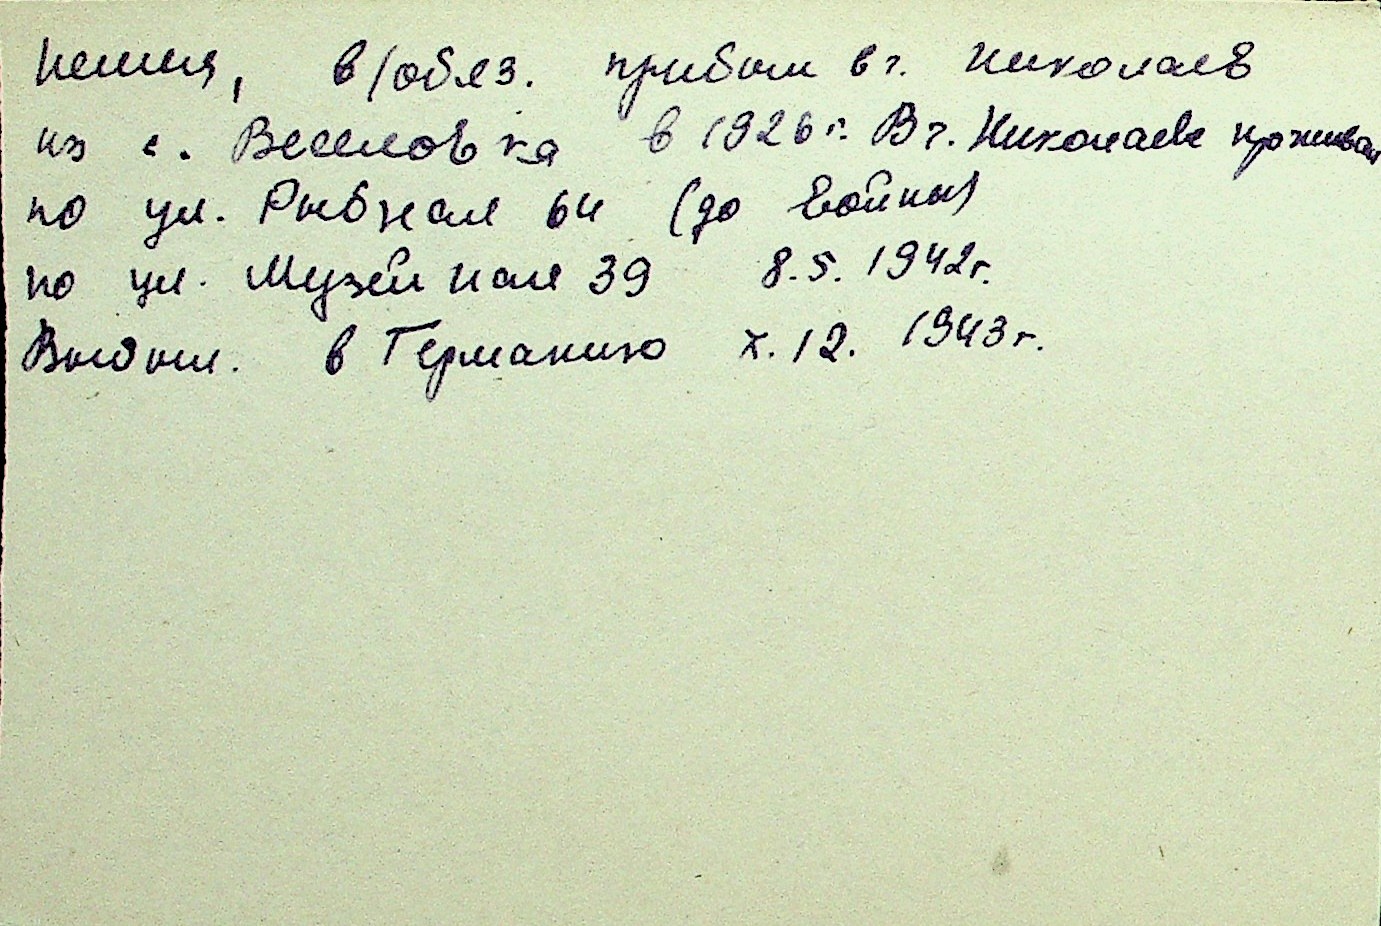 немец, в/обяз. прибыл в г. Николаев
из с. Веселовка в 1926 г. В г. Николаеве проживал
по ул. Рыбная 64 (до войны)
по ул. Музейная 39 8.5. 1942г.
Выбыл. в Германию х. 12. 1943г.